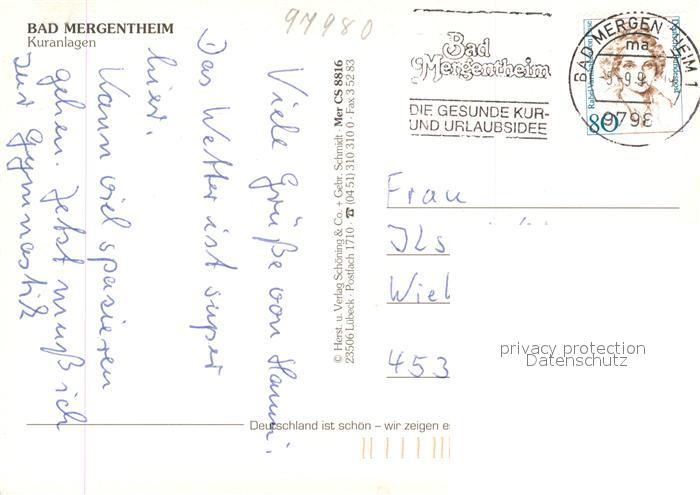 BAD MERGENTHEIM
Kuranlagen
97980
Bad
Mergentheim
DIE GESUNDE KUR-
UND URLAUBSIDEE
BAD MERGENTHEIM 1
ma
9798
80
Viele Grüße von Hanni.
Das Wetter ist super
hier.
Kann viel spazieren
gehen. Jetzt muß ich
zur Gymnastik
© Herst. u. Verlag Schöning & Co. + Gebr. Schmidt · Mer CS 8816
23506 Lübeck · Postfach 1710 · ☎ (04 51) 310 310 0 · Fax 3 52 83
Frau
Ils
Wiel
453
privacy protection
Datenschutz
Deutschland ist schön – wir zeigen es